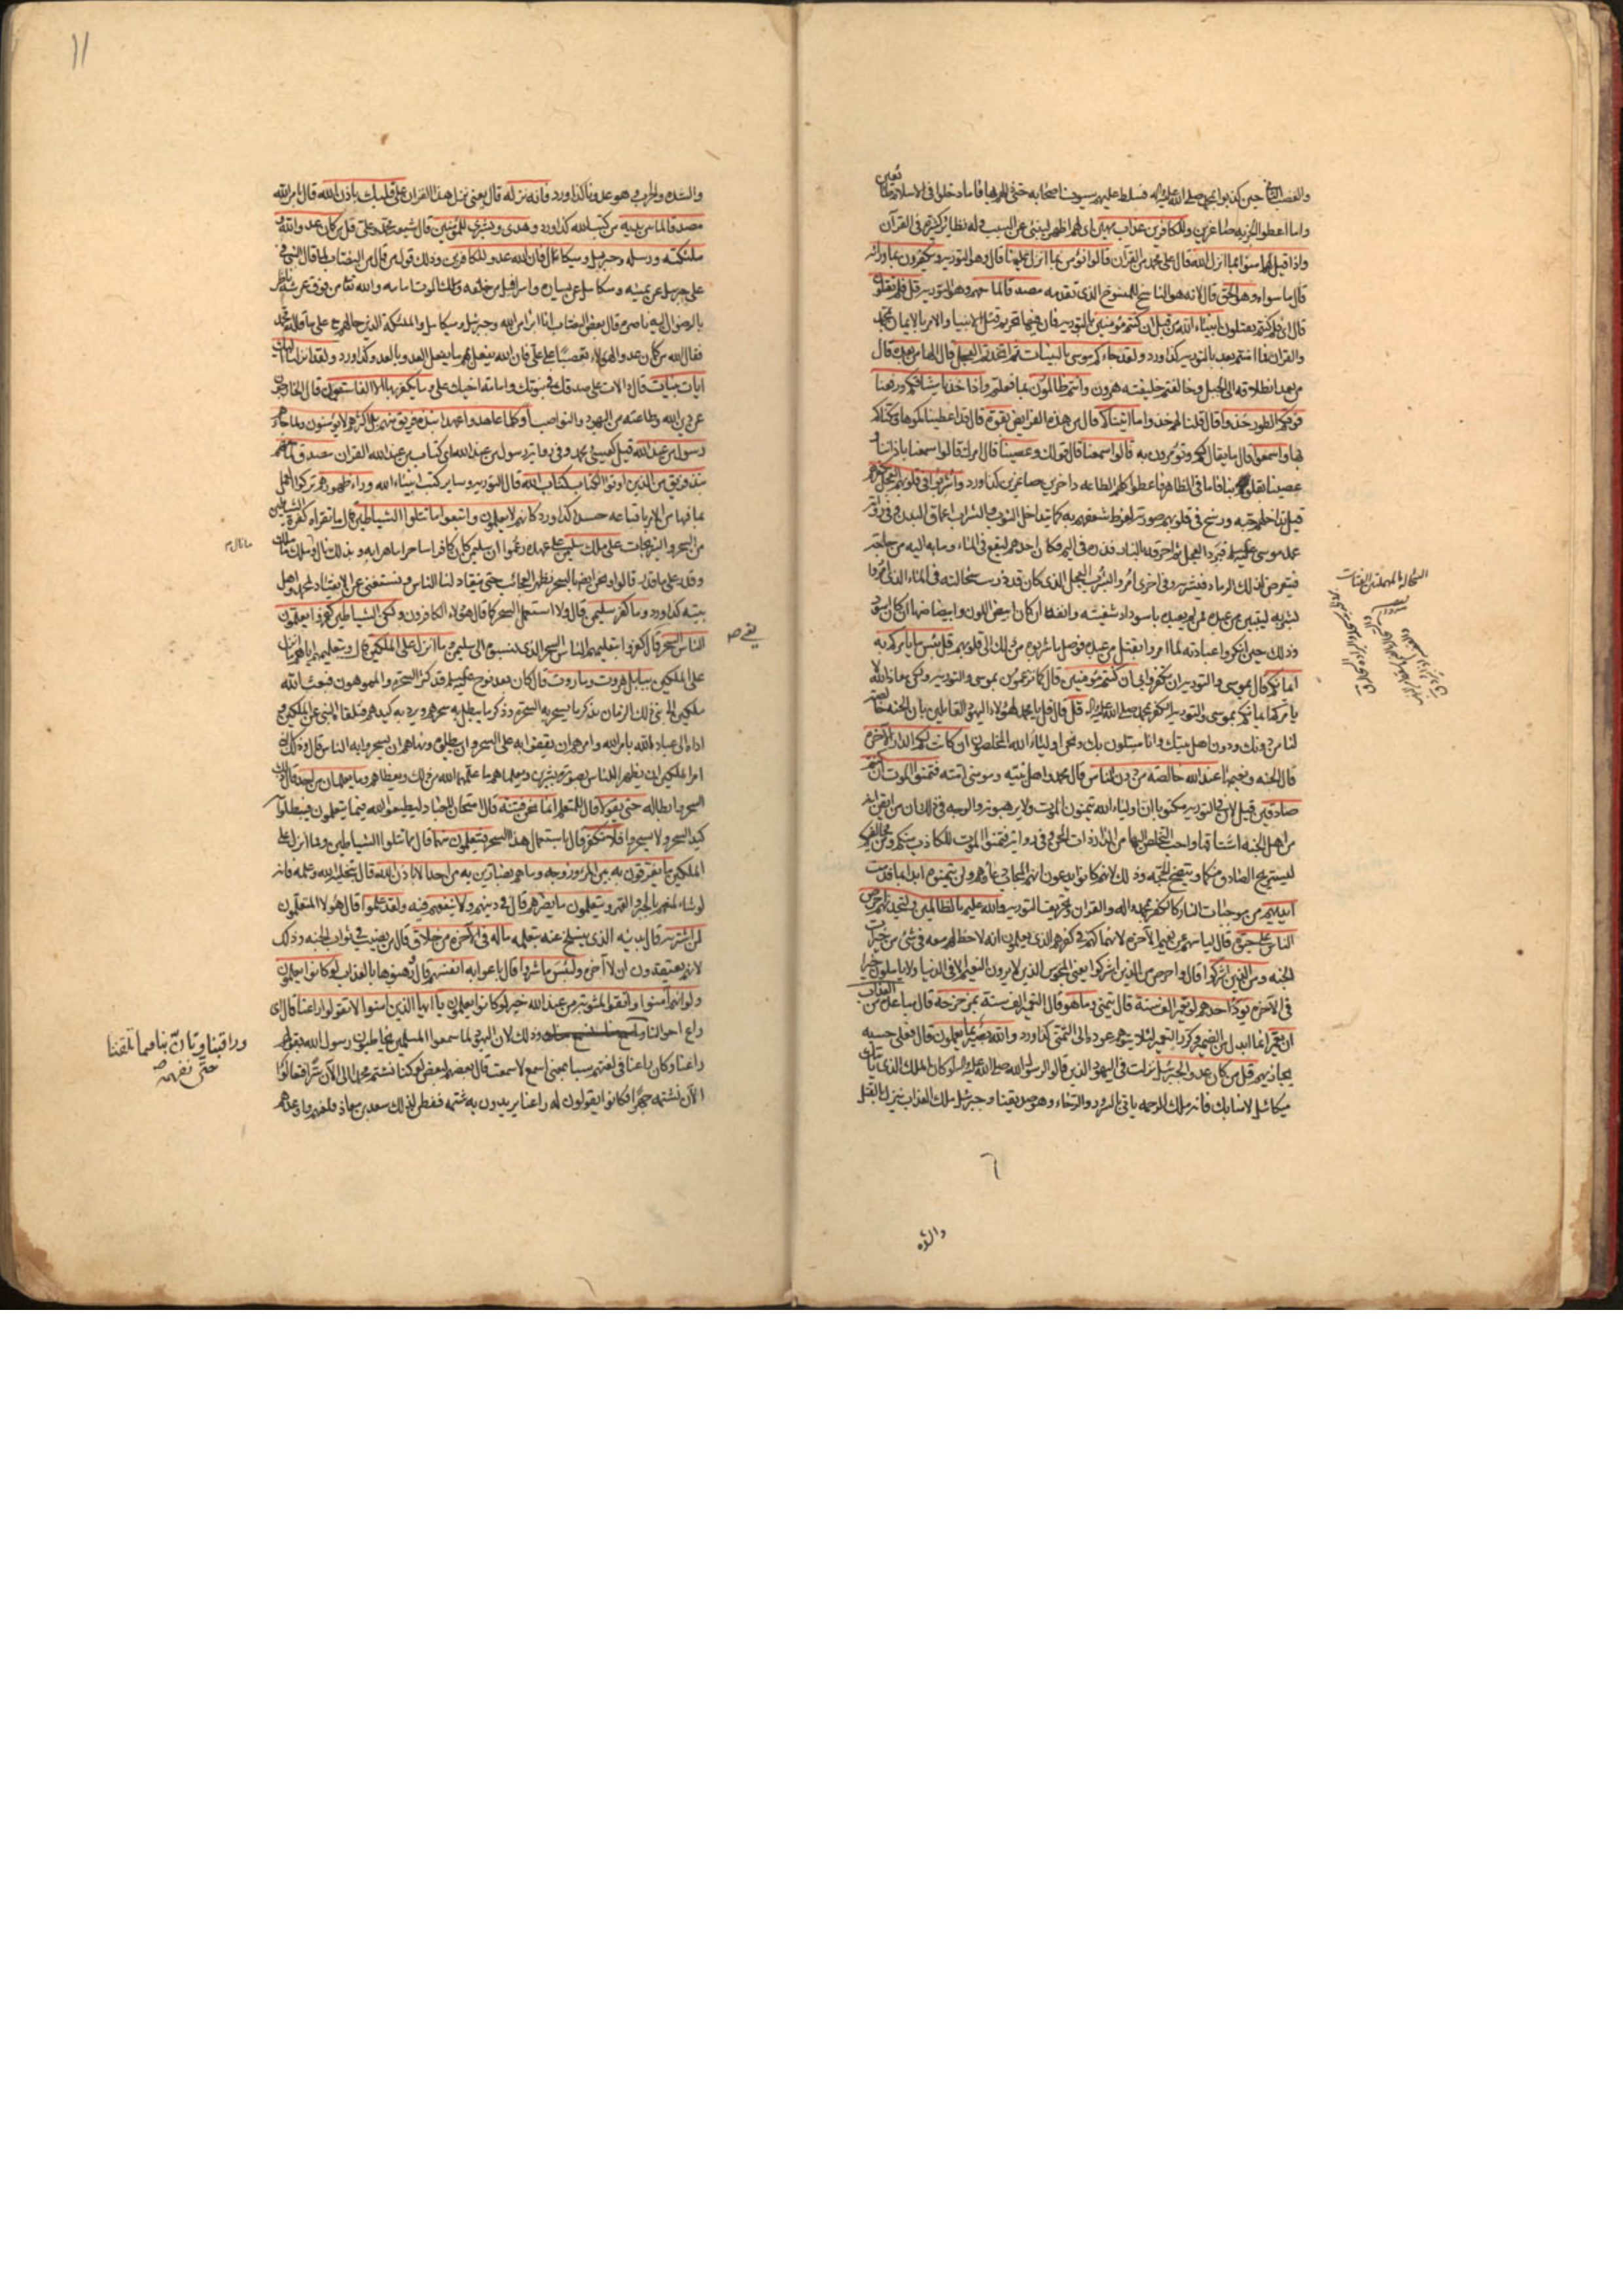 والغضب الثاني حين كذبوا بمحمد صلى الله عليه وآله فسلط عليهم سيوف اصحابه حتى ذللهم بها فاما دخلوا في الاسلام طائعين
واما اعطوا الجزية صاغرين وللكافرين عذاب مهين اي لهم اظهر لينبئ عن السبب وله نظائر كثيرة في القرآن
واذا قيل لهم آمنوا بما انزل الله قال على محمد من القرآن قالوا نؤمن بما انزل علينا قال وهو التورية ويكفرون بما وراءه
قال ما سواه وهو الحق قال لانه هو الناسخ للمنسوخ الذي تقدمه مصدقا لما معهم وهو التورية قل فلم تقتلون
قال اي فلم كنتم تقتلون انبياء الله من قبل ان كنتم مؤمنين بالتورية فان فيها تحريم قتل الانبيا والامر بالايمان بمحمد
والقران فما آمنتم بعد بالتورية كذا ورد ولقد جاءكم موسى بالبينات ثم اتخذتم العجل قال الها من بعده قال
من بعد انطلاقه الى الجبل وخالفتم خليفته هرون وانتم ظالمون بما فعلتم واذ اخذنا ميثاقكم ورفعنا
فوقكم الطور خذوا قال قلنا لهم خذوا ما آتيناكم قال من هذه الفرايض بقوة قال قد اعطيناكموها ومكناكم
بها واسمعوا قال ما يقال لكم وتؤمرون به قالوا سمعنا قال قولك وعصينا قال امرك قالوا سمعنا باذاننا و
عصينا بقلوبنا فاما في الظاهر فاعطوا كلهم الطاعة داخرين صاغرين كذا ورد واشربوا في قلوبهم العجل بكفرهم
قيل تداخلهم حبه ورسخ في قلوبهم صورته لفرط شعفهم به كما يتداخل الثوب الصبغ والشراب اعماق البدن وفي رواية
عمد موسى عليه السلام فبرد العجل ثم احرقه بالنار فذره في اليم فكان احدهم ليقع في الماء وما به اليه من حاجة
فيتعرض لذلك الرماد فيشربه وفي اخرى امروا بشرب العجل الذي كان قد ذرت سحالته في الماء الذي امروا
بشربه ليتبين من عبده ممن لم يعبده باسوداد شفتيه وانفه ان كان ابيض اللون وابيضاضهما ان كان اسود
وذلك حين انكروا عبادته لما امروا بقتل من عبده فوصل ما شربوه من ذلك الى قلوبهم قل بئس ما يامركم به
ايمانكم قال بموسى والتورية ان تكفروا بي ان كنتم مؤمنين قال كما تزعمون بموسى والتورية ولكن معاذ الله لا
يامركم ايمانكم بموسى والتورية الكفر بمحمد صلى الله عليه وآله قل قال قل يا محمد لهؤلاء اليهود القائلين بان الجنة خالصة
لنا من دونك ودون اهل بيتك وانا مبتلون بك ونحن اولياء الله المخلصون ان كانت لكم الدار الآخرة
قال الجنة ونعيمها عند الله خالصة من دون الناس قال محمد واهل بيته ومومني امته فتمنوا الموت ان كنتم
صادقين قيل لان في التورية مكتوبا ان اولياء الله يتمنون الموت ولا يرهبونه والوجه في ذلك ان من ايقن انه
من اهل الجنة اشتاقها واحب التخلص اليها من الدار ذات الشوب وفي رواية فتمنوا الموت للكاذب منكم ومن مخالفيكم
ليستريح الصادقون منكما ويتضح الحجة وذلك لانهم كانوا يدعون انهم المجاب دعاؤهم ولن يتمنوه ابدا بما قدمت
ايديهم من موجبات النار كالكفر بمحمد وآله والقران وتحريف التورية والله عليم بالظالمين ولتجدنهم احرص
الناس على حيوة قال لياسهم عن نعيم الآخرة لانهماكهم في كفرهم الذي يعلمون انه لا حظ لهم معه في شئ من خيرات
الجنة ومن الذين اشركوا قال واحرص من الذين اشركوا يعني المجوس الذين لا يرون النعيم الا في الدنيا ولا ياملون خيرا
في الآخرة يود احدهم لو يعمر الف سنة قال تمنى وما هو قال التعمير الف سنة بمزحزحه قال مباعده من العذاب
ان يعمر انما ابدل من الضمير وكرر التعمير لئلا يتوهم عوده الى التمني كذا ورد والله بصير بما يعملون قال فعلى حسبه
يجازيهم قل من كان عدوا لجبرئيل نزلت في اليهود الذين قالوا لرسول الله صلى الله عليه وآله لو كان الملك الذي ياتيك
ميكائيل لآمنا بك فانه ملك الرحمة ياتي بالسرور والرخاء وهو صديقنا وجبرئيل ملك العذاب ينزل بالقتل
والشدة
١١
والشدة والحرب وهو عدونا كذا ورد فانه نزله قال يعني نزل هذا القران على قلبك باذن الله قال بامر الله
مصدقا لما بين يديه من كتب الله كذا ورد وهدى وبشرى للمؤمنين قال شيعة محمد وعلي قل من كان عدوا لله و
ملئكته ورسله وجبريل وميكائيل قال فان الله عدو للكافرين وذلك قول من قال من النصاب لما قال النبي في
علي جبريل عن يمينه وميكائيل عن يساره واسرافيل من خلفه وملك الموت امامه والله تعالى من فوق عرشه ناظر
بالرضوان اليه ناصره قال بعض النصاب انا ابرأ من الله وجبرئيل وميكائيل والملئكة الذين حالهم مع علي ما قاله محمد
فقال الله من كان عدوا لهؤلاء تعصبا على علي فان الله يفعل بهم ما يفعل العدو بالعدو كذا ورد ولقد انزلنا اليك
ايات بينات قال دالات على صدقك في نبوتك وامامة اخيك علي وما يكفر بها الا الفاسقون قال الخارجون
عن دين الله وطاعته من اليهود والنواصب أوكلما عاهدوا عهدا نبذه فريق منهم بل اكثرهم لا يؤمنون ولما جاءهم
رسول من عند الله قيل كعيسى ومحمد وفي رواية رسول من عند الله اي كتاب من عند الله القران مصدق لما معهم
نبذ فريق من الذين اوتوا الكتاب كتاب الله قال التورية وساير كتب انبياء الله وراء ظهورهم تركوا العمل
بما فيها من الامر باتباعه حسدا كذا ورد كانهم لا يعلمون واتبعوا ما تتلوا الشياطين قال ما تقراه كفرة الشياطين
من السحر والنيرنجات على ملك سليمن على عهده وزعموا ان سليمن كان كافرا ساحرا ماهرا به وبذلك نال وملك ما ملك
وقدر على ما قدر قالوا ونحن ايضا بالسحر نظهر العجائب حتى ينقاد لنا الناس ونستغني عن الانقياد لمحمد واهل
بيته كذا ورد وما كفر سليمن قال ولا استعمل السحر كما قال هؤلاء الكافرون ولكن الشياطين كفروا يعلمون
الناس السحر قال كفروا بتعليمهم الناس السحر الذي نسبوه الى سليمن وما انزل على الملكين قال وبتعليمهم اياهم ما انزل
على الملكين ببابل هروت وماروت قال كان بعد نوح عليه السلام قد كثر السحرة والمموهون فبعث الله
ملكين الى نبي ذلك الزمان بذكر ما يسحر به السحرة وذكر ما يبطل به سحرهم ويرد به كيدهم فتلقاه النبي عن الملكين و
اداه الى عباد الله بامر الله وامرهم ان يقفوا به على السحر وان يبطلوه ونهاهم ان يسحروا به الناس قال وذلك النبي
امر الملكين ان يظهرا للناس بصورة بشرين ويعلماهم ما علمهما الله من ذلك ويعظاهم وما يعلمان من احد قال ذلك
السحر وابطاله حتى يقولا قال للمتعلم انما نحن فتنة قال امتحان للعباد ليطيعوا الله فيما يتعلمون فيبطلوا به
كيد السحر ولا يسحروا فلا تكفر قال باستعمال هذا السحر فيتعلمون منهما قال مما تتلوا الشياطين ومما انزل على
الملكين ما يفرقون به بين المرء وزوجه وما هم بضارين به من احد الا باذن الله قال بتخلية الله وعلمه فانه
لو شاء لمنعهم بالجبر والقهر ويتعلمون ما يضرهم قال في دينهم ولا ينفعهم فيه ولقد علموا قال هؤلاء المتعلمون
لمن اشتريه قال بدينه الذي ينسلخ عنه بتعلمه ماله في الآخرة من خلاق قال من نصيب في ثواب الجنة وذلك
لانهم يعتقدون ان لا آخرة ولبئس ما شروا قال باعوا به انفسهم قال رهنوها بالعذاب لو كانوا يعلمون
ولو انهم آمنوا واتقوا لمثوبة من عند الله خير لو كانوا يعلمون يا ايها الذين امنوا لا تقولوا راعنا قال اي
راع احوالنا وذلك لان اليهود لما سمعوا المسلمين يخاطبون رسول الله بقولهم
راعنا وكان راعنا في لغتهم سبا بمعنى اسمع لا سمعت قال بعضهم لبعض لو كنا نشتم محمدا الى الآن سرا فتعالوا
الآن نشتمه جهرا فكانوا يقولون له راعنا يريدون به شتمه ففطن لذلك سعد بن معاذ فلعنهم واوعدهم
وراقبنا وتأن بنا فيما تلقننا
حتى نفهمه